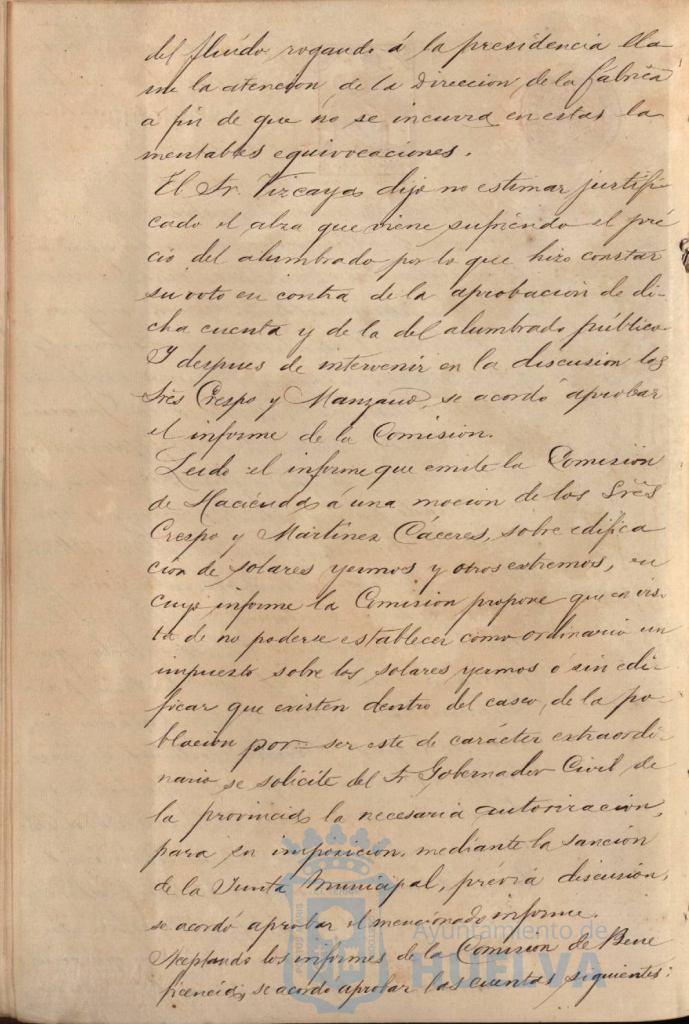 del fluído, rogando á la presidencia lla-
me la atencion de la Direccion de la fábrica
a fin de que no se incurra en estas la
mentables equivocaciones.
El Sr. Vizcaya dijo no estimar justifi-
cado el alza que viene sufriendo el pré
cio del alumbrado por lo que hizo constar
su voto en contra de la aprobacion de di-
cha cuenta y de la del alumbrado público.
Y despues de intervenir en la discusion los
Sres Crespo y Manzano, se acordó aprobar
el informe de la Comisión.
Leido el informe que emite la Comision
de Hacienda á una mocion de los Sres
Crespo y Martínez Cáceres, sobre edifica
ción de solares yermos y otros extremos, en
cuyo informe la Comision propone que en vis-
ta de no poderse establecer como ordinario un
impuesto sobre los solares yermos o sin edi-
ficar que existen dentro del casco de la po-
blacion por ser este de carácter extraordi-
nario se solicite del Sr Gobernador Civil de
la provincia la necesaria autorizacion,
para su imposicion, mediante la sancion
de la Junta Municipal, prévia discusion,
se acordó aprobar el mencionado informe.
Aceptando los informes de la Comision de Bene
ficencia, se acordo aprobar las cuentas siguientes:
Ayuntamiento de
HUELVA